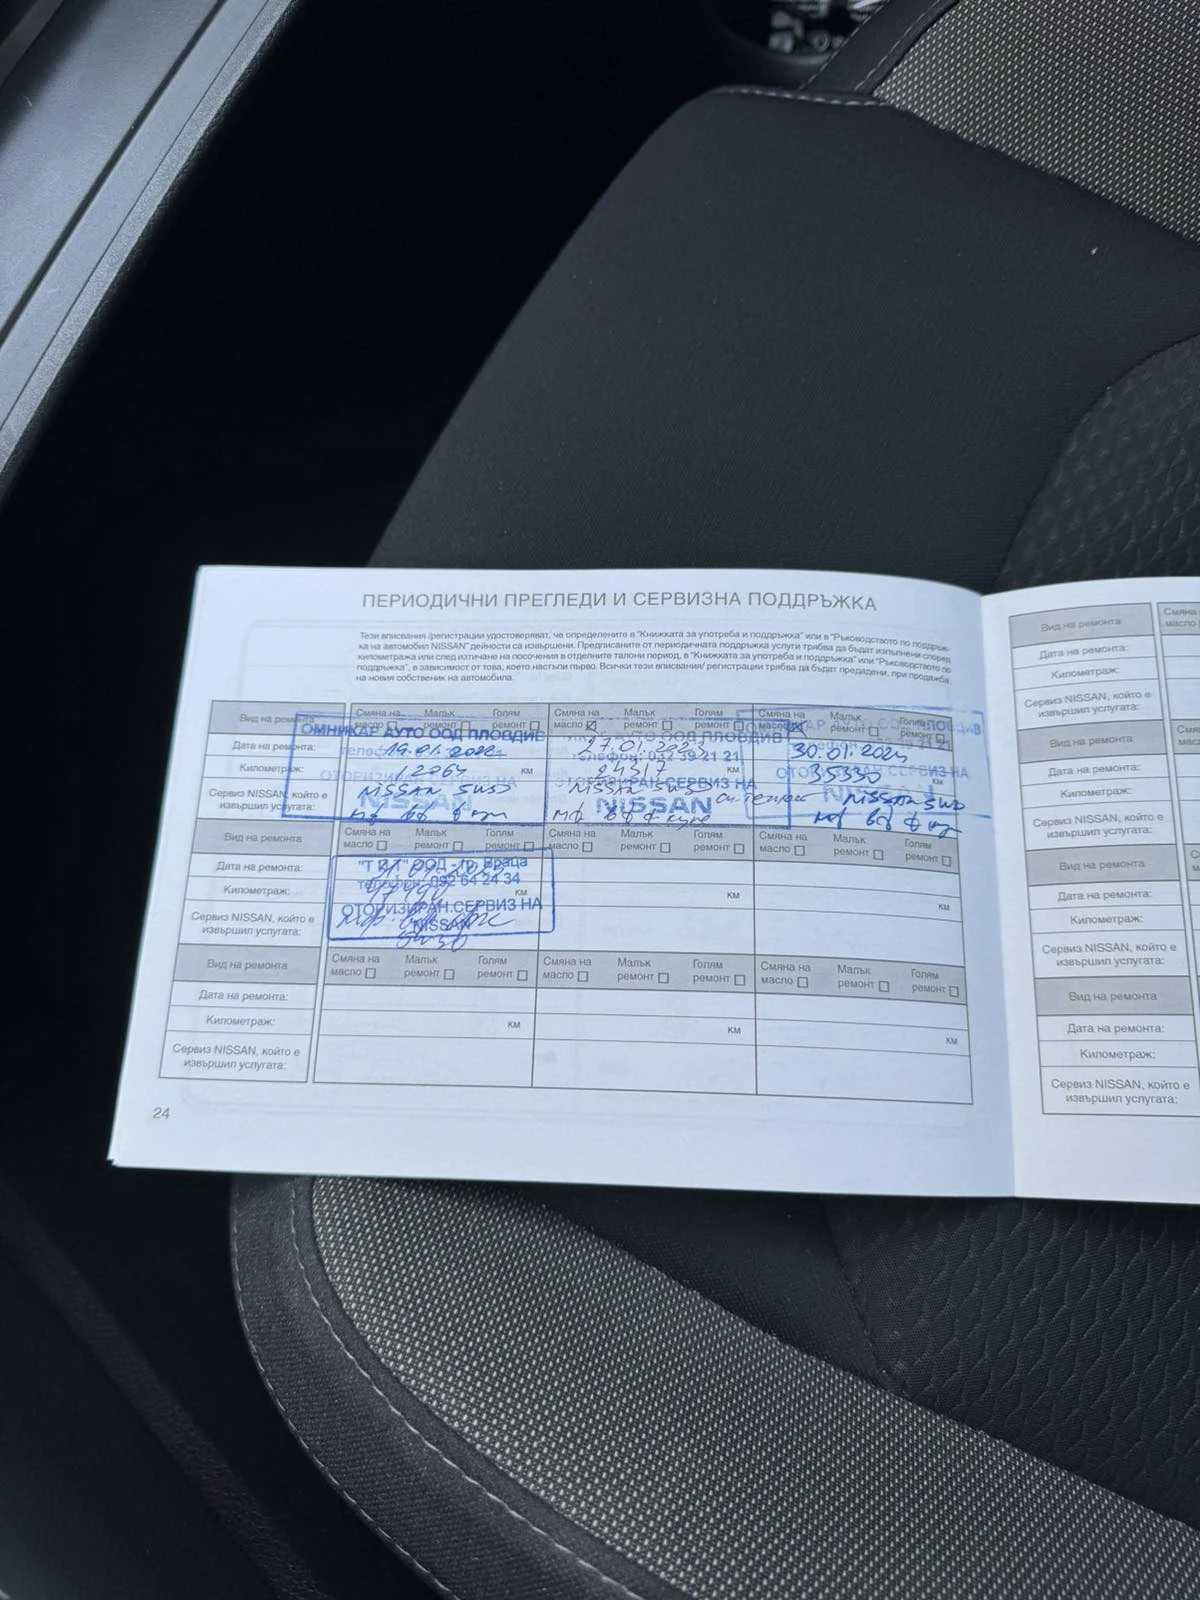 ПЕРИОДИЧНИ ПРЕГЛЕДИ И СЕРВИЗНА ПОДДРЪЖКА
Тези вписвания /регистрации удостоверяват, че определените в "Книжката за употреба и поддръжка" или в "Ръководството по поддръж-
ка на автомобил NISSAN" дейности са извършени. Предписаните от периодичната поддръжка услуги трябва да бъдат изпълнени според
километража или след изтичане на посочения в отделните талони период, в "Книжката за употреба и поддръжка" или "Ръководството по
поддръжка", в зависимост от това, което настъпи първо. Всички тези вписвания/ регистрации трябва да бъдат предадени, при продажба,
на новия собственик на автомобила.
Вид на ремонта Смяна на масло Малък ремонт Голям ремонт Смяна на масло Малък ремонт Голям ремонт Смяна на масло Малък ремонт Голям ремонт
ОМНИКАР АУТО ООД ПЛОВДИВ
телефон: 032 39 21 21
ОТОРИЗИРАН СЕРВИЗ НА
NISSAN
Дата на ремонта: 27.01.2023
Километраж: км км 35330 км
Сервиз NISSAN, който е
извършил услугата:
NISSAN 5W30 NISSAN 5W30 NISSAN 5W30
Вид на ремонта Смяна на масло Малък ремонт Голям ремонт Смяна на масло Малък ремонт Голям ремонт Смяна на масло Малък ремонт Голям ремонт
Дата на ремонта:
Километраж: км км км
Сервиз NISSAN, който е
извършил услугата:
ООД гр. Враца
телефон: 092 64 24 34
ОТОРИЗИРАН СЕРВИЗ НА
NISSAN
5W30
Вид на ремонта Смяна на масло Малък ремонт Голям ремонт Смяна на масло Малък ремонт Голям ремонт Смяна на масло Малък ремонт Голям ремонт
Дата на ремонта:
Километраж: км км км
Сервиз NISSAN, който е
извършил услугата:
24
Вид на ремонта Смяна масло
Дата на ремонта:
Километраж:
Сервиз NISSAN, който е
извършил услугата:
Вид на ремонта Смяна масло
Дата на ремонта:
Километраж:
Сервиз NISSAN, който е
извършил услугата:
Вид на ремонта
Дата на ремонта:
Километраж:
Сервиз NISSAN, който е
извършил услугата:
Вид на ремонта
Дата на ремонта:
Километраж:
Сервиз NISSAN, който е
извършил услугата: